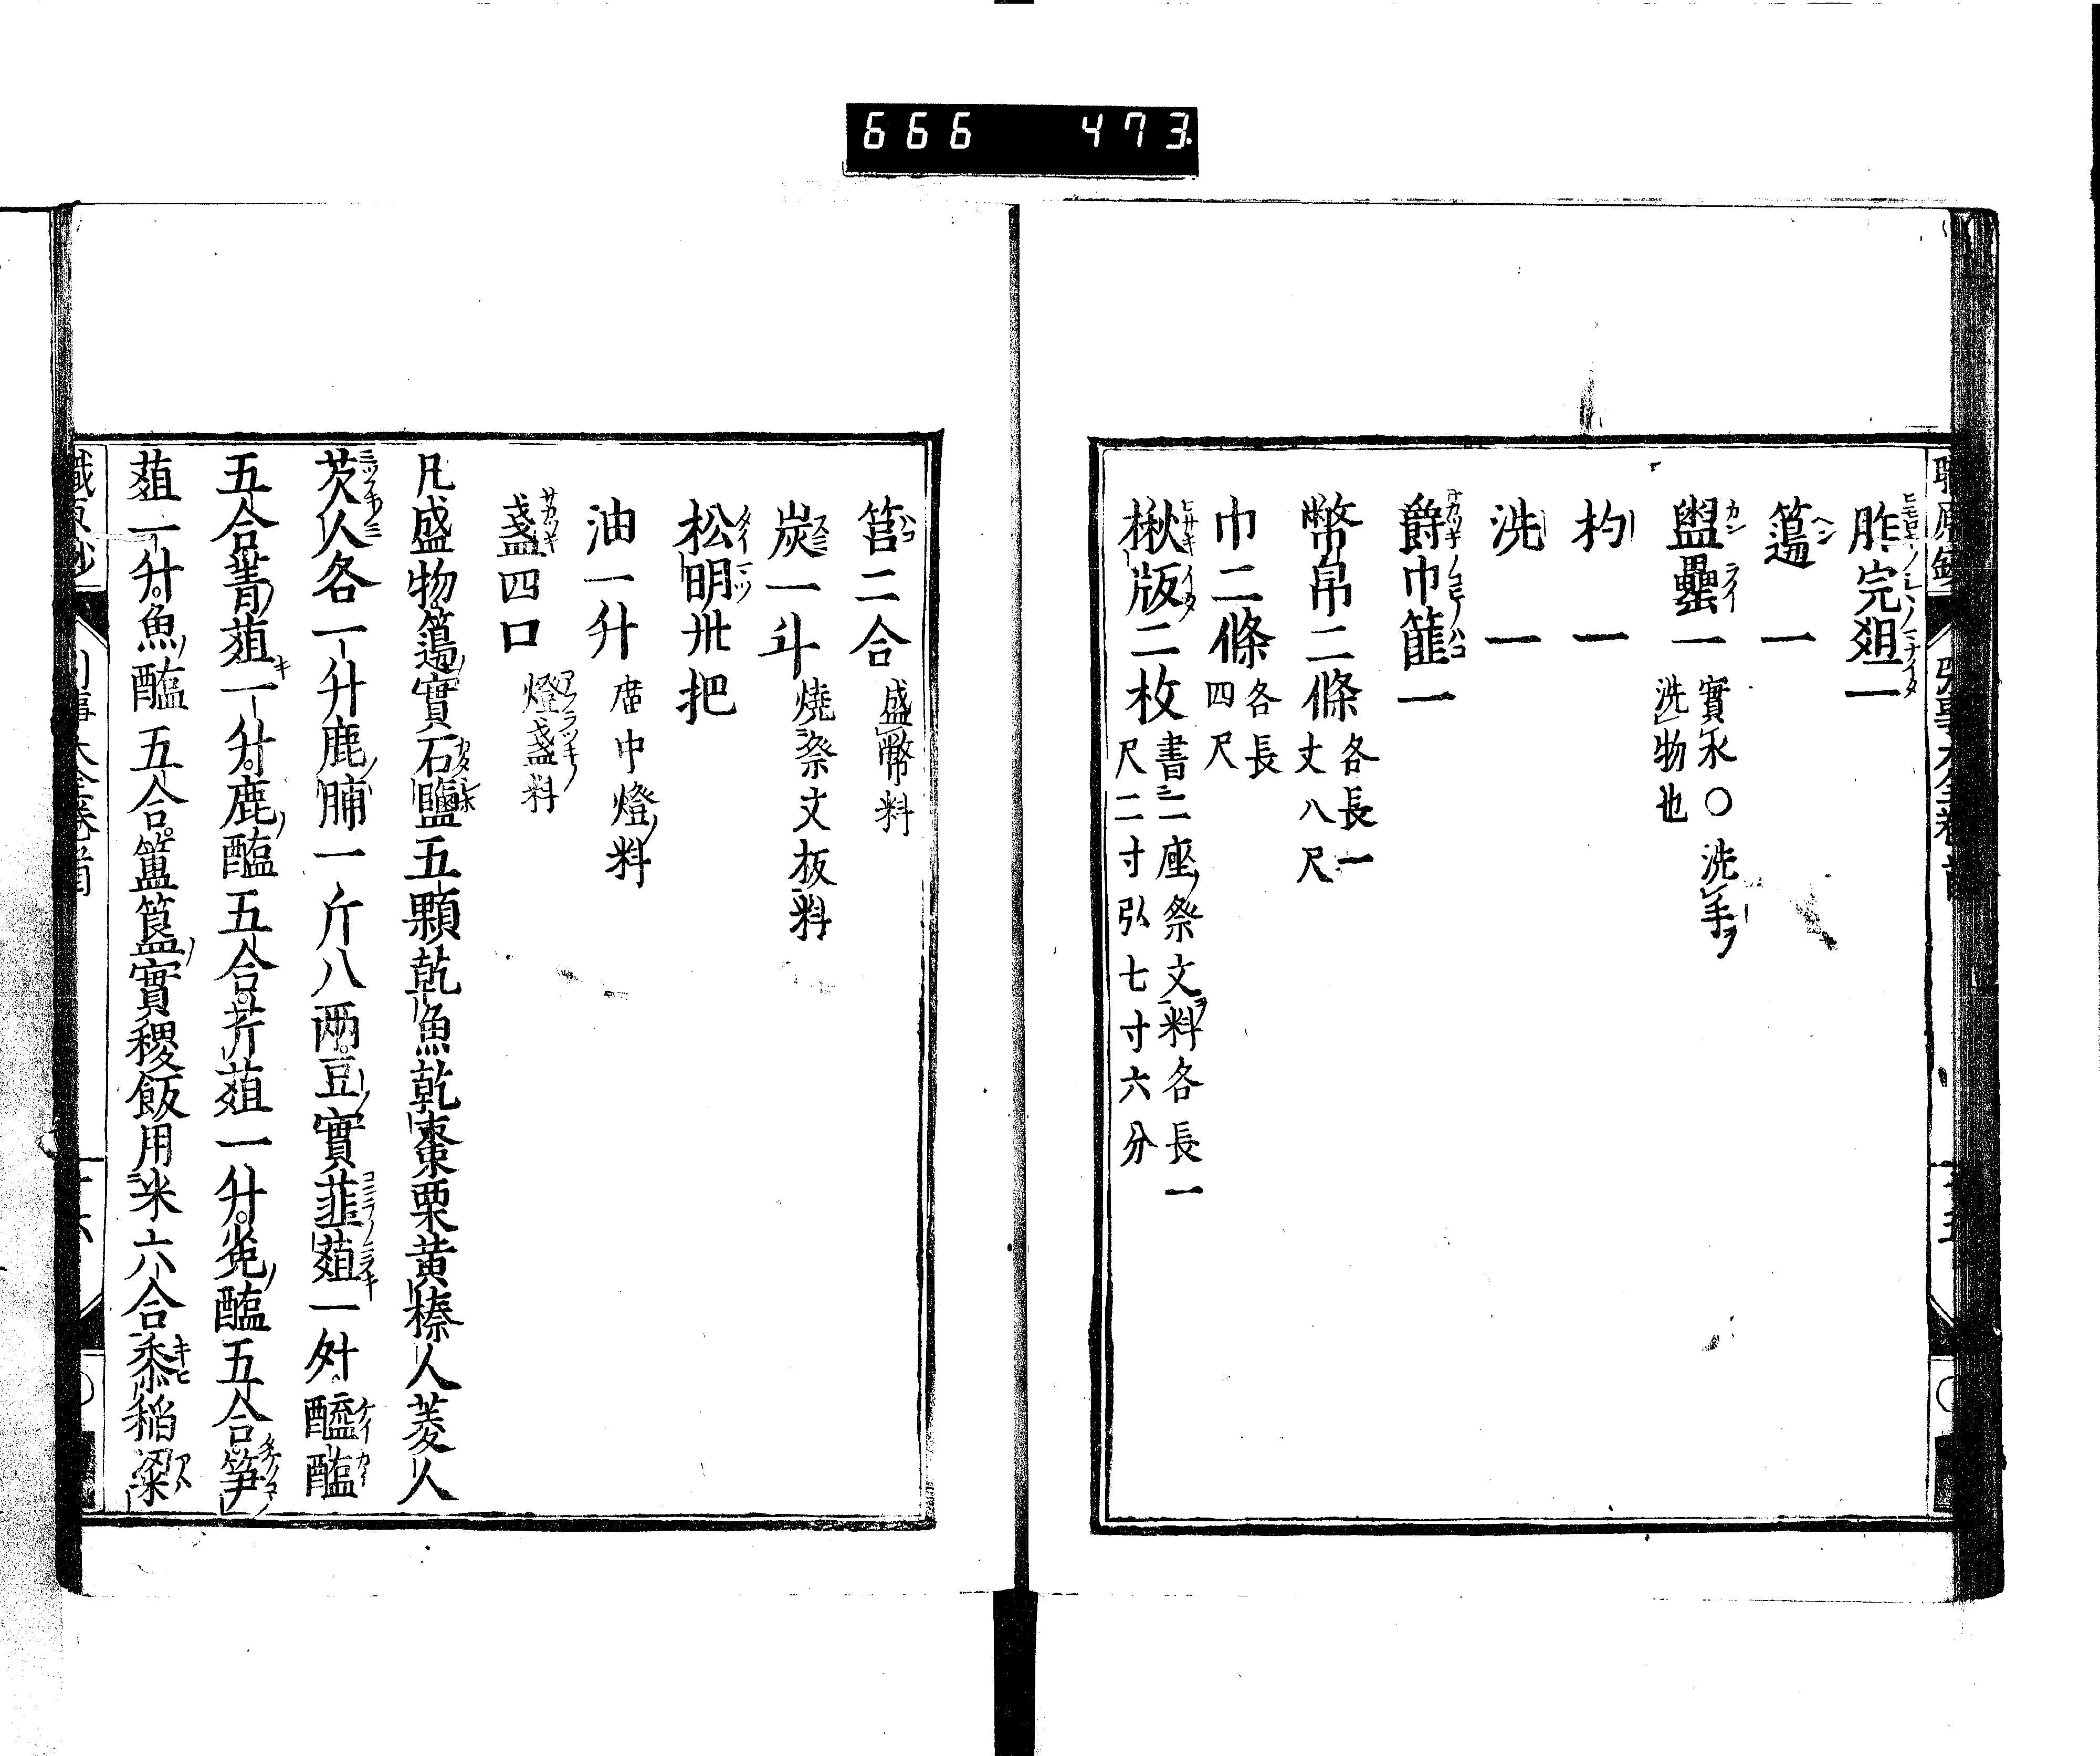 666 473
胙完爼一
籩一
盥罍一 實水〇洗手ヲ
洗物也
杓一
洗一
爵巾篚一
幣帛二條 各長一
丈八尺
巾二條 各長
四尺
楸版二枚 書二座祭文料各長一
尺二寸弘七寸六分
筥二合 盛幣料
炭一斗 燒祭文板料
松明卅把
油一升 庿中燈料
盞四口 燈盞料
凡盛物籩實石鹽五顆乾魚乾棗栗黄榛人菱人
芡人各一升鹿脯一斤八兩豆實韮葅一升醓醢
五合菁葅一升鹿醢五合芹葅一升兎醢五合笋
葅一升魚醢五合簠簋實稷飯用米六合黍稲粱